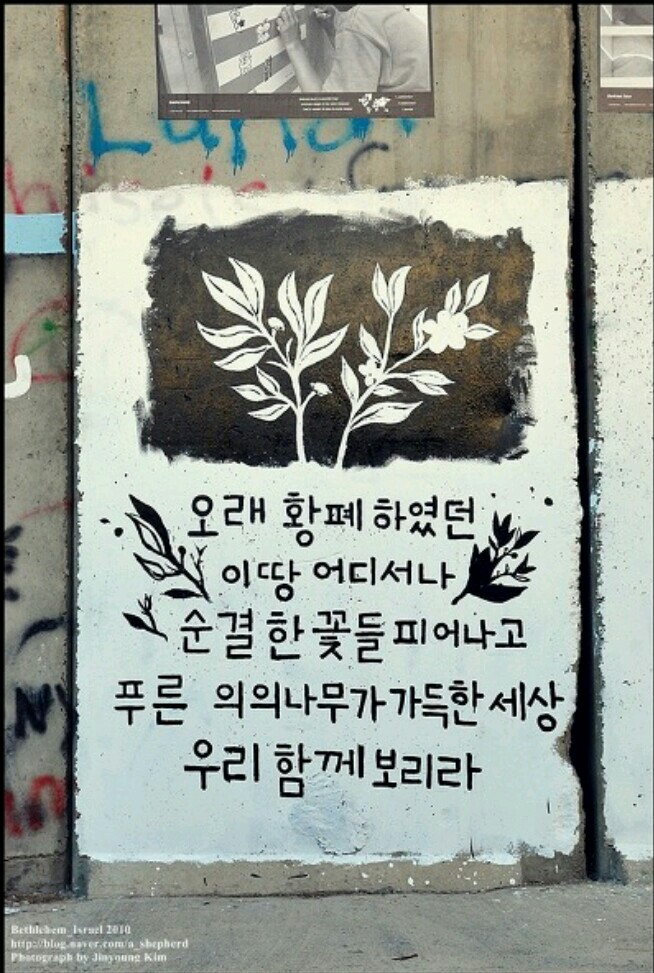 오래 황폐 하였던
이땅 어디서나
순결한 꽃들 피어나고
푸른 의의나무가 가득한 세상
우리 함께 보리라
Bethlehem_Israel 2010
http://blog.naver.com/a_shepherd
Photograph by Jinyoung Kim